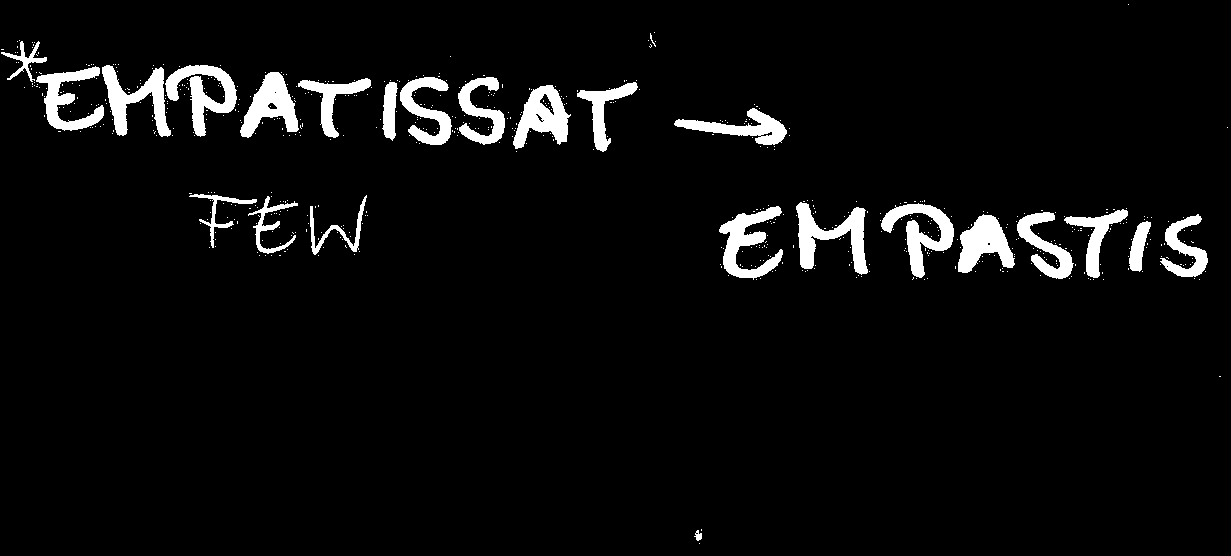 *EMPATISSAT →
FEW
EMPASTIS